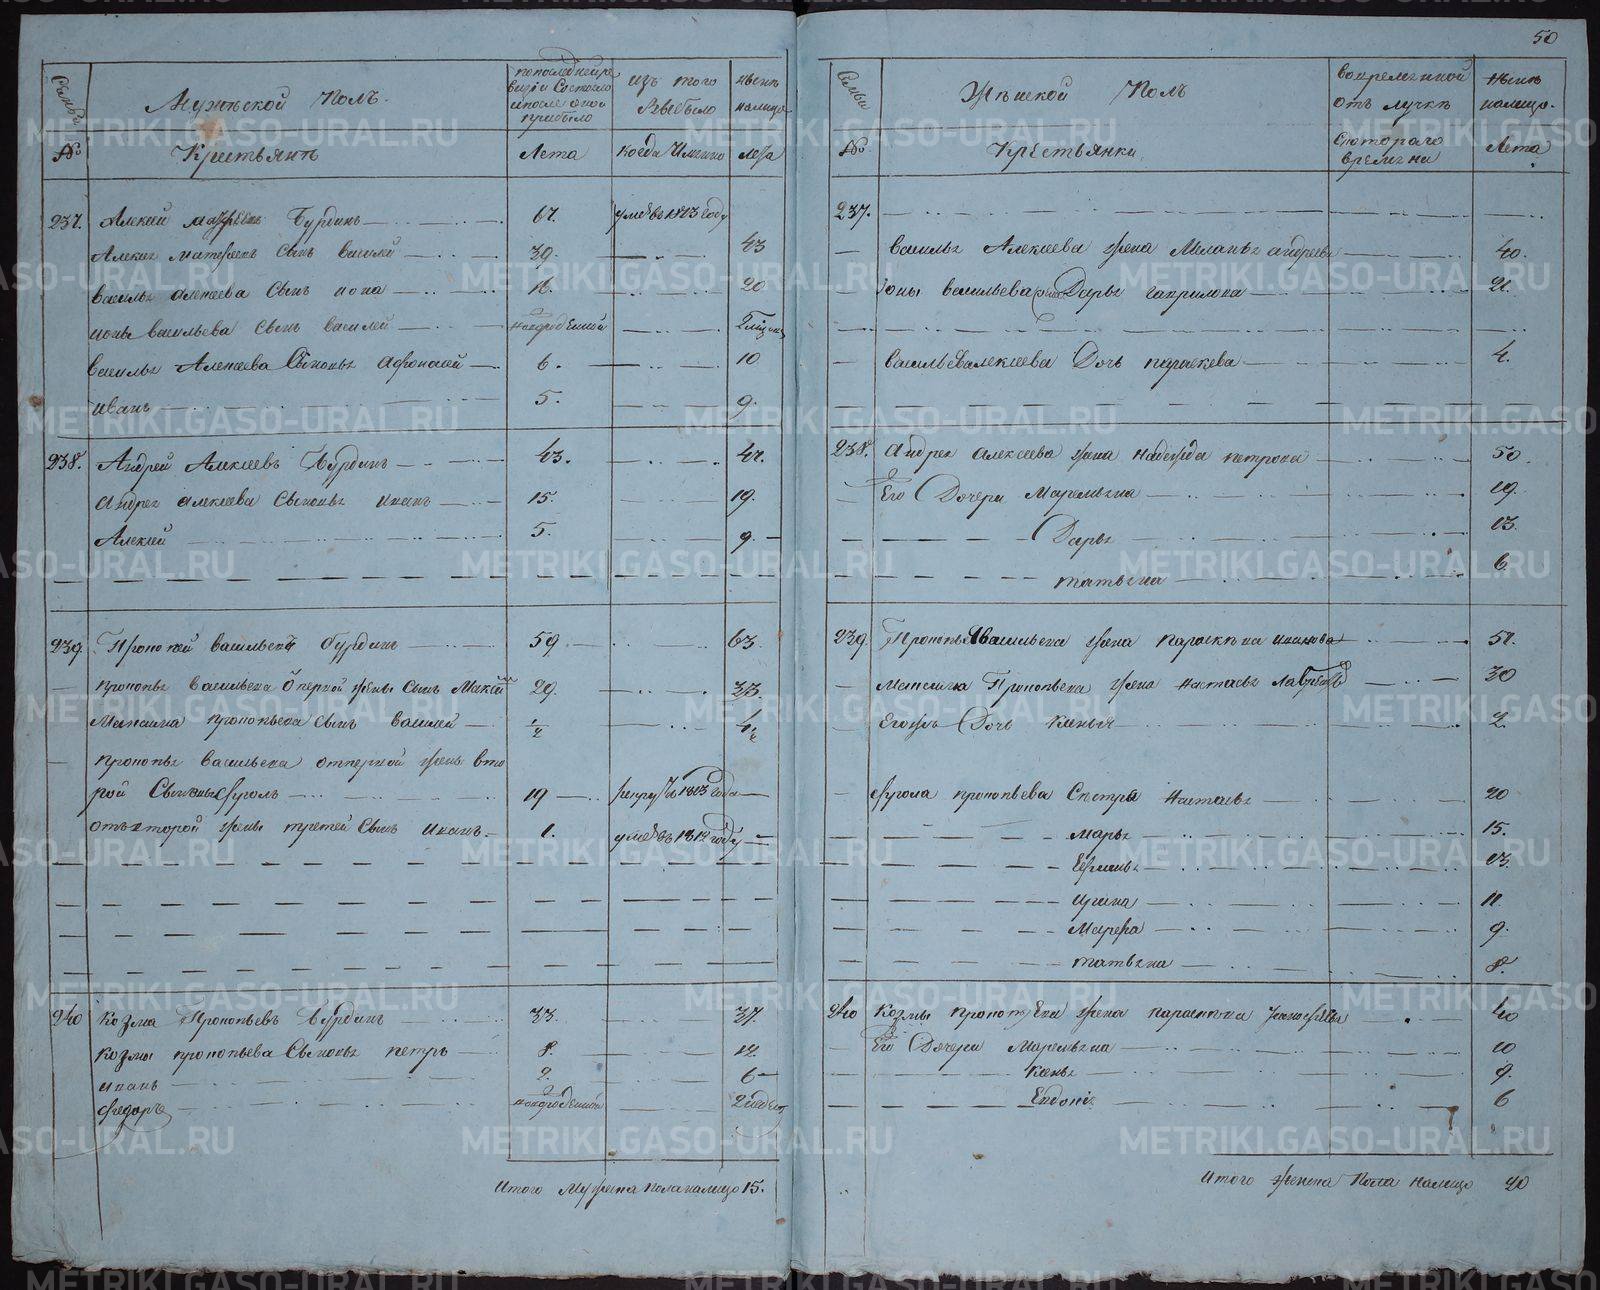 50
Семьи
Мужеской Полъ.
по последней ре
визіи Состояло
и после оной
прибыло
изъ того
Выбыло
ныне
налицо
№
Крестьянъ
Лета
когда Имянно
лета
237. Алексей Бурдинъ 67. умеръ 1813 году
Алексея сынъ василей 39. 43
василья алексеева Сынъ иона 16. 20
ионы васильева Сынъ василей новорожденной
василья Алексеева Сыновья афонасей 6. 10
иванъ 5. 9.
238. Андрей Алексеевъ Бурдинъ 43. 47.
андрея алексеева Сыновья иванъ 15. 19.
Алексей 5. 9.
239. Прокопей васильевъ бурдинъ 59. 63.
прокопья васильева от первой жены сынъ Максимъ 29. 33.
Максима прокопьева сынъ василей
прокопья васильева от первой жены вто
рой Сынъ Фролъ 19 рекрутъ 1813 года
отъ второй жены третей Сынъ иванъ 1. умеръ 1812 году
240 козма Прокопьевъ бурдинъ 33. 37.
козмы прокопьева Сыновья петръ 8. 12.
иванъ 2. 6
федоръ новорожденной
Итого Мужеска пола налицо 15.
Семьи
Женской Полъ
во временной
отлучке
ныне
налицо.
№
Крестьянки
Скотораго
времени
Лета
237.
василья Алексеева жена Маланья андреева 40.
ионы васильева жена Дарья гаврилова 21.
василья алексеева Дочь параскева 4.
238. Андрея алексеева жена надежда петрова 50
Его Дочери Маремьяна 19.
Дарья 13.
татьяна 6.
239. Прокопья васильева жена параскева иванова 51.
максима Прокопьева жена настасья 30
Его жъ Дочь ксенья 2.
фрола прокопьева Сестра настасья 20
марья 15.
13.
ирина 11.
Марфа 9.
татьяна 8.
240 козмы прокопьева жена параскева 40
Его Дочери Маремьяна 10
ксенья 9.
Евдокия 6
Итого женска Пола налицо 20
METRIKI.GASO-URAL.RU